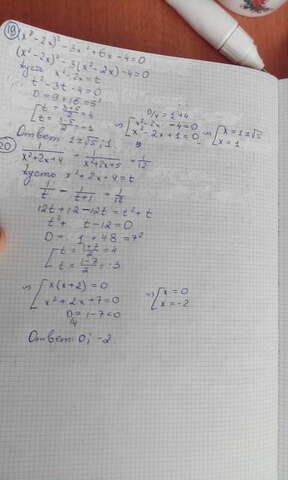 19 (x²-2x)²-3x²+6x-4=0
(x²-2x)²-3(x²-2x)-4=0
Пусть x²-2x=t
t²-3t-4=0
D=9+16=5²
[t=(3+5)/2=4
[t=(3-5)/2=-1
D/4=1+4
[x²-2x-4=0
[x²-2x+1=0
[x=1±√5
[x=1
Ответ 1±√5; 1
20 1/(x²+2x+4) - 1/(x²+2x+5) = 1/12
Пусть x²+2x+4=t
1/t - 1/(t+1) = 1/12
12t+12-12t=t²+t
t²+t-12=0
D=1+48=7²
[t=(1+7)/2=4
[t=(1-7)/2=-3
[x(x+2)=0
[x²+2x+7=0
[x=0
[x=-2
D/4=1-7<0
Ответ 0; -2